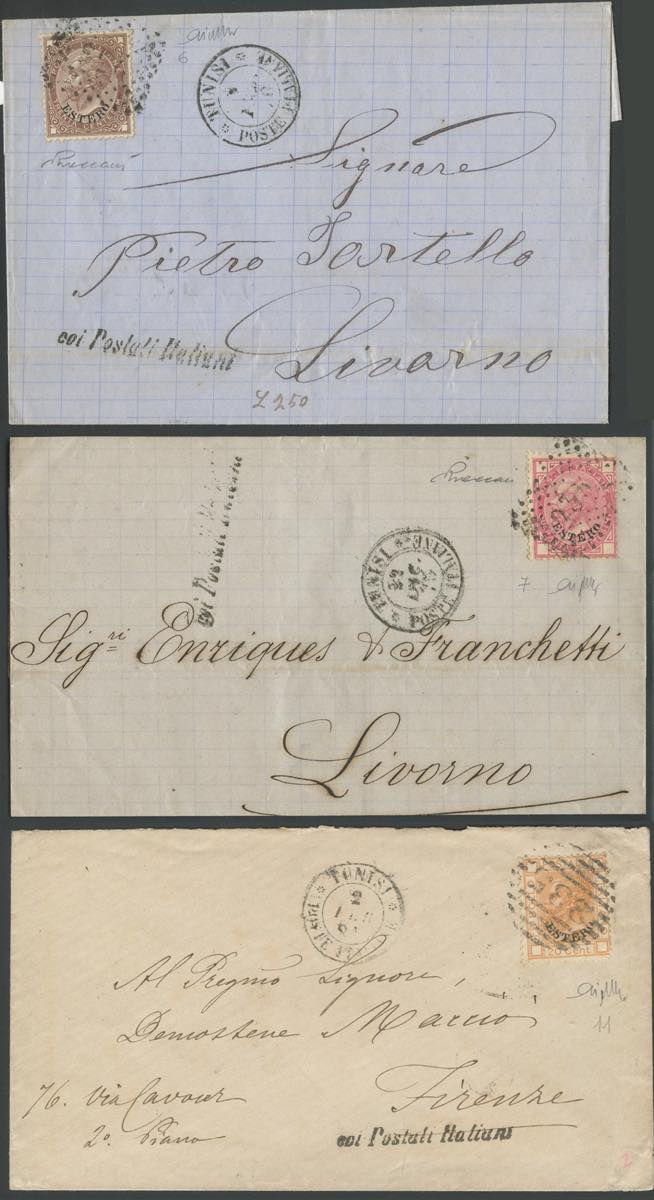 ESTERO
6
TUNISI
POSTE ITALIANE
Signore
Pietro Tortello
Livorno
coi Postali Italiani
£ 250
ESTERO
7
TUNISI
22
DIC
POSTE ITALIANE
coi Postali Italiani
Sig.ri Enriques & Franchetti
Livorno
TUNISI
ESTERO
20 Cent.
11
Al Pregmo Signore,
Demostene Macciò
76. Via Cavour
Firenze
2º Piano
coi Postali Italiani
2